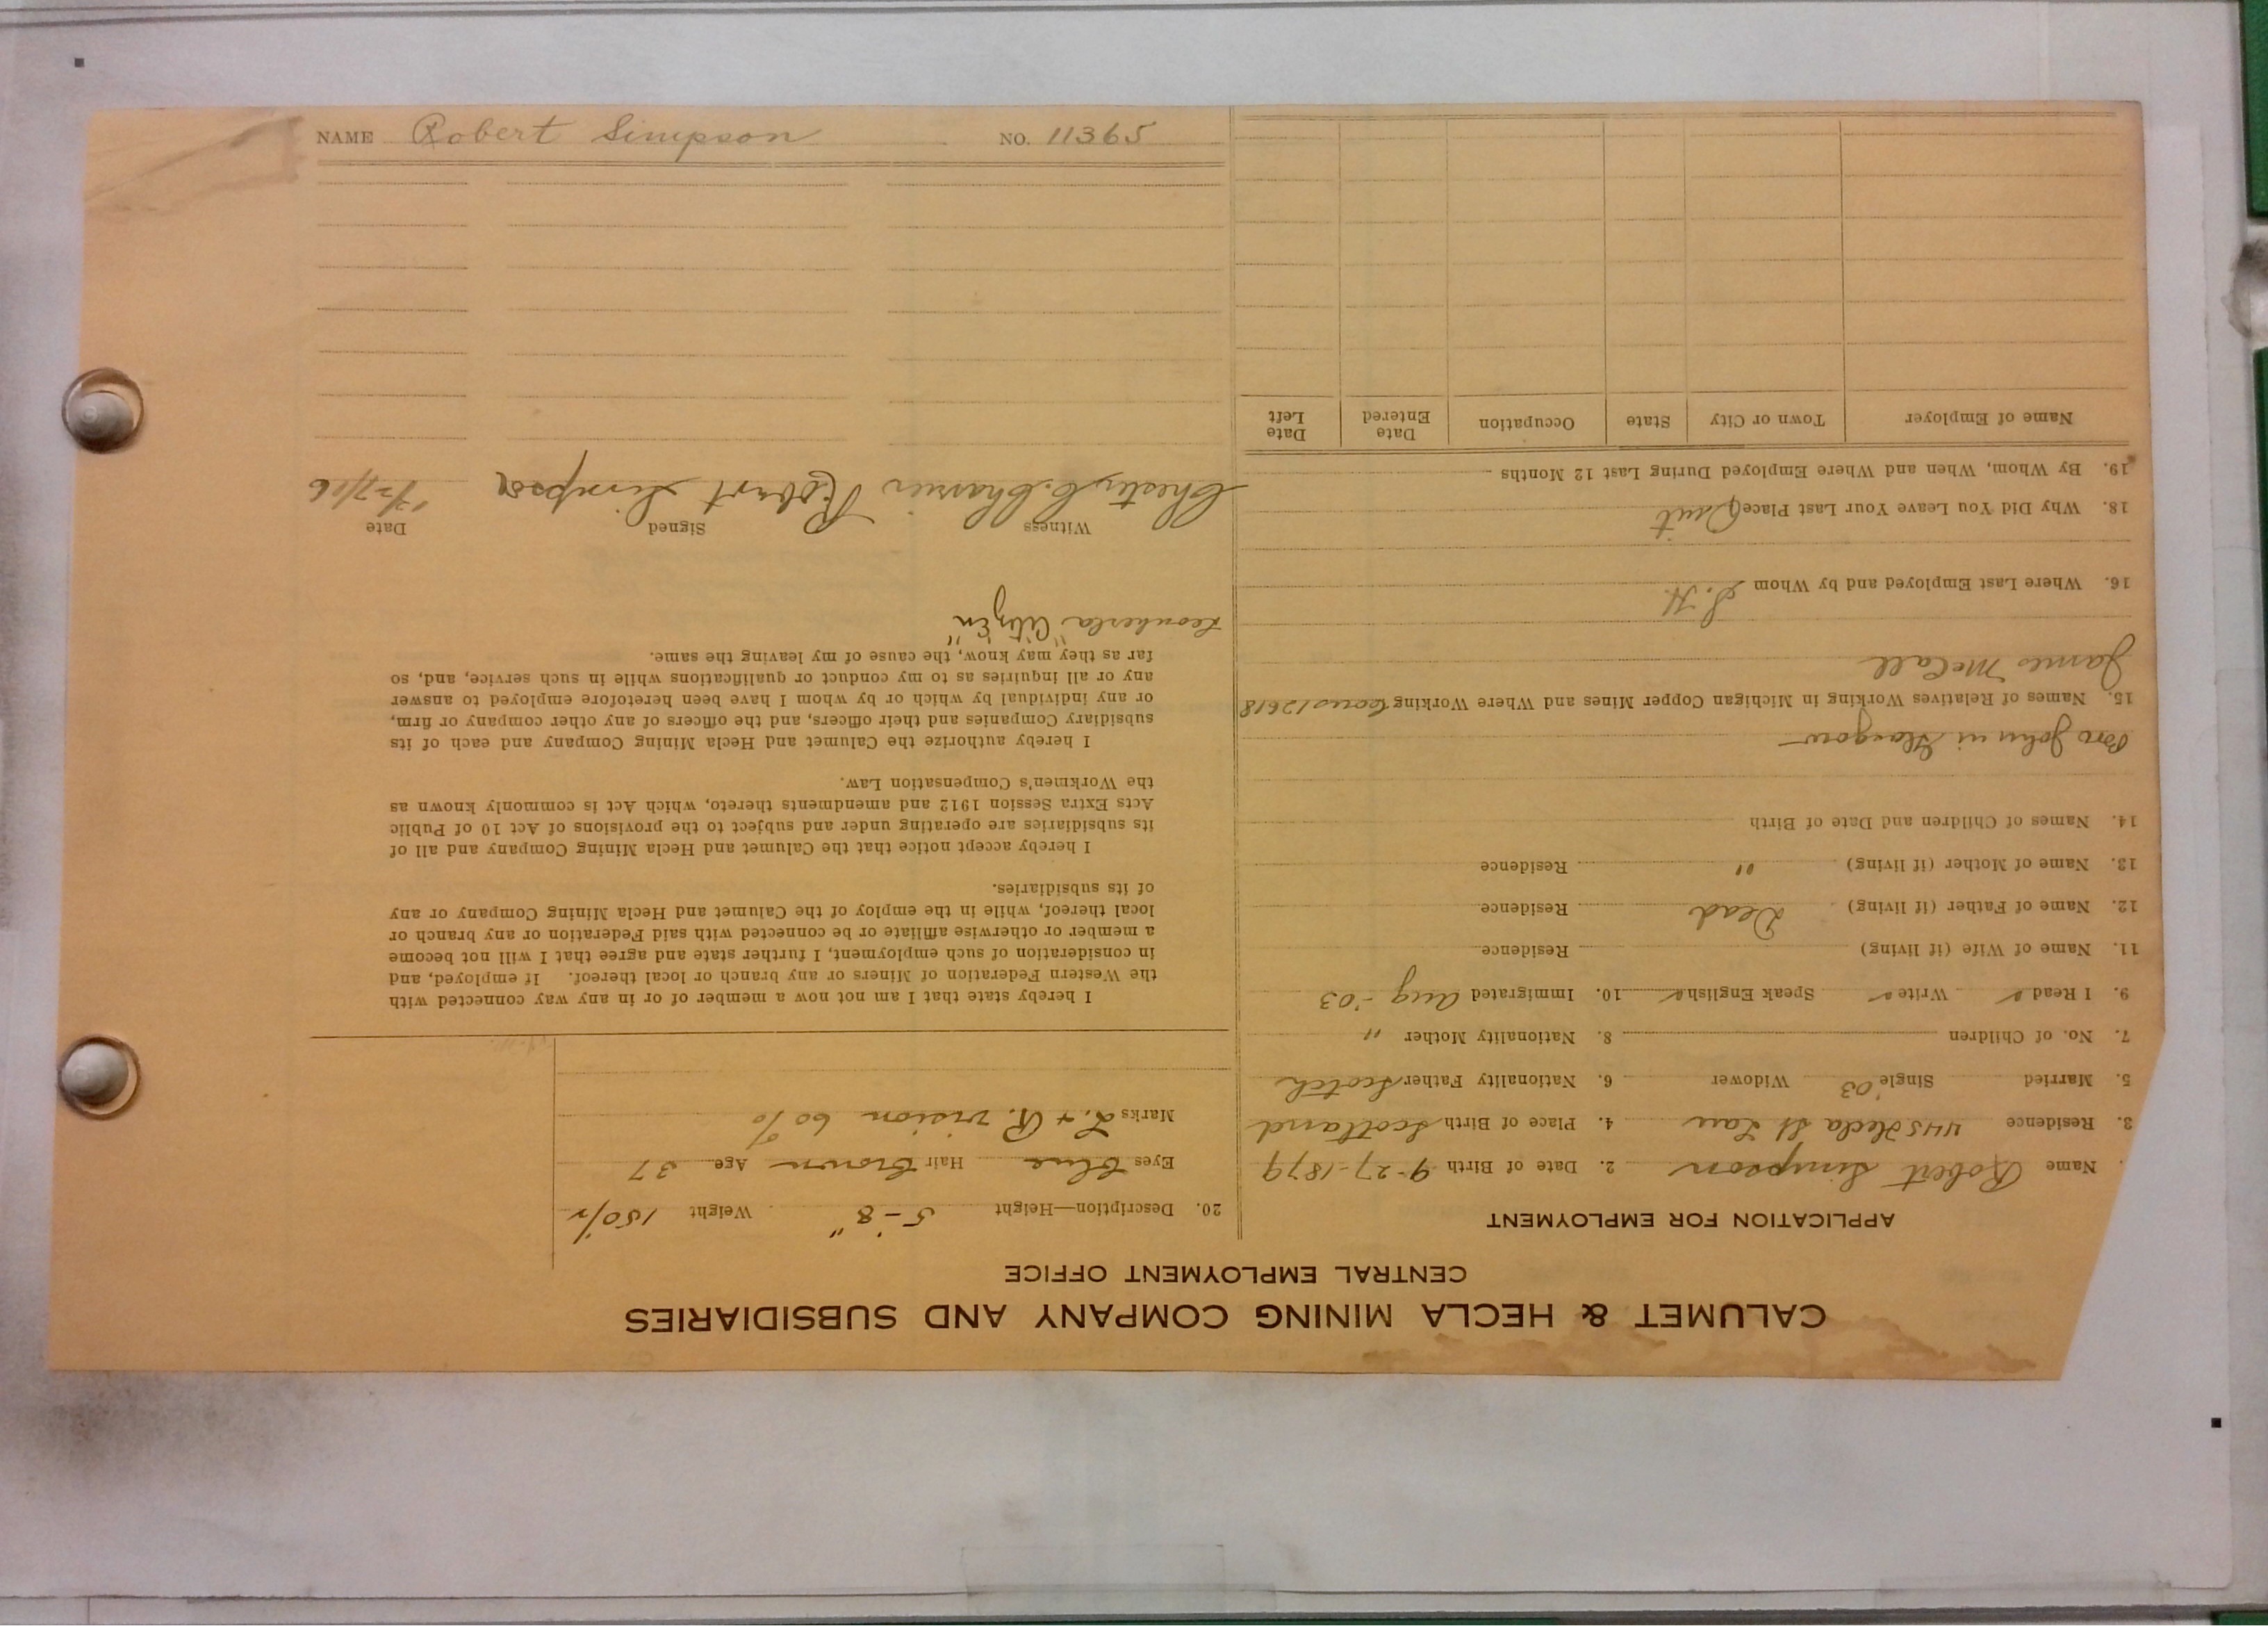 CALUMET & HECLA MINING COMPANY AND SUBSIDIARIES
CENTRAL EMPLOYMENT OFFICE
APPLICATION FOR EMPLOYMENT
. Name Robert Simpson 2. Date of Birth 9-27-1879
3. Residence 445 Hecla St Lau 4. Place of Birth Scotland
5. Married Single '03 Widower 6. Nationality Father Scotch
7. No. of Children 8. Nationality Mother "
9. I Read Write Speak English 10. Immigrated Aug - '03
11. Name of Wife (if living) Residence
12. Name of Father (if living) Dead Residence
13. Name of Mother (if living) " Residence
14. Names of Children and Date of Birth
Bro John in Glasgow
15. Names of Relatives Working in Michigan Copper Mines and Where Working 12618
James McCall
16. Where Last Employed and by Whom S. H.
18. Why Did You Leave Your Last Place Quit
19. By Whom, When and Where Employed During Last 12 Months
Name of Employer Town or City State Occupation Date Entered Date Left
20. Description—Height 5'-8" Weight 150½
Eyes blue Hair brown Age 37
Marks L. + R. vision 60%
I hereby state that I am not now a member of or in any way connected with
the Western Federation of Miners or any branch or local thereof. If employed, and
in consideration of such employment, I further state and agree that I will not become
a member or otherwise affiliate or be connected with said Federation or any branch or
local thereof, while in the employ of the Calumet and Hecla Mining Company or any
of its subsidiaries.
I hereby accept notice that the Calumet and Hecla Mining Company and all of
its subsidiaries are operating under and subject to the provisions of Act 10 of Public
Acts Extra Session 1912 and amendments thereto, which Act is commonly known as
the Workmen's Compensation Law.
I hereby authorize the Calumet and Hecla Mining Company and each of its
subsidiary Companies and their officers, and the officers of any other company or firm,
or any individual by which or by whom I have been heretofore employed to answer
any or all inquiries as to my conduct or qualifications while in such service, and, so
far as they may know, the cause of my leaving the same.
"Citizen"
Witness Signed Date
Chester C. Robert Simpson
NAME Robert Simpson NO. 11365